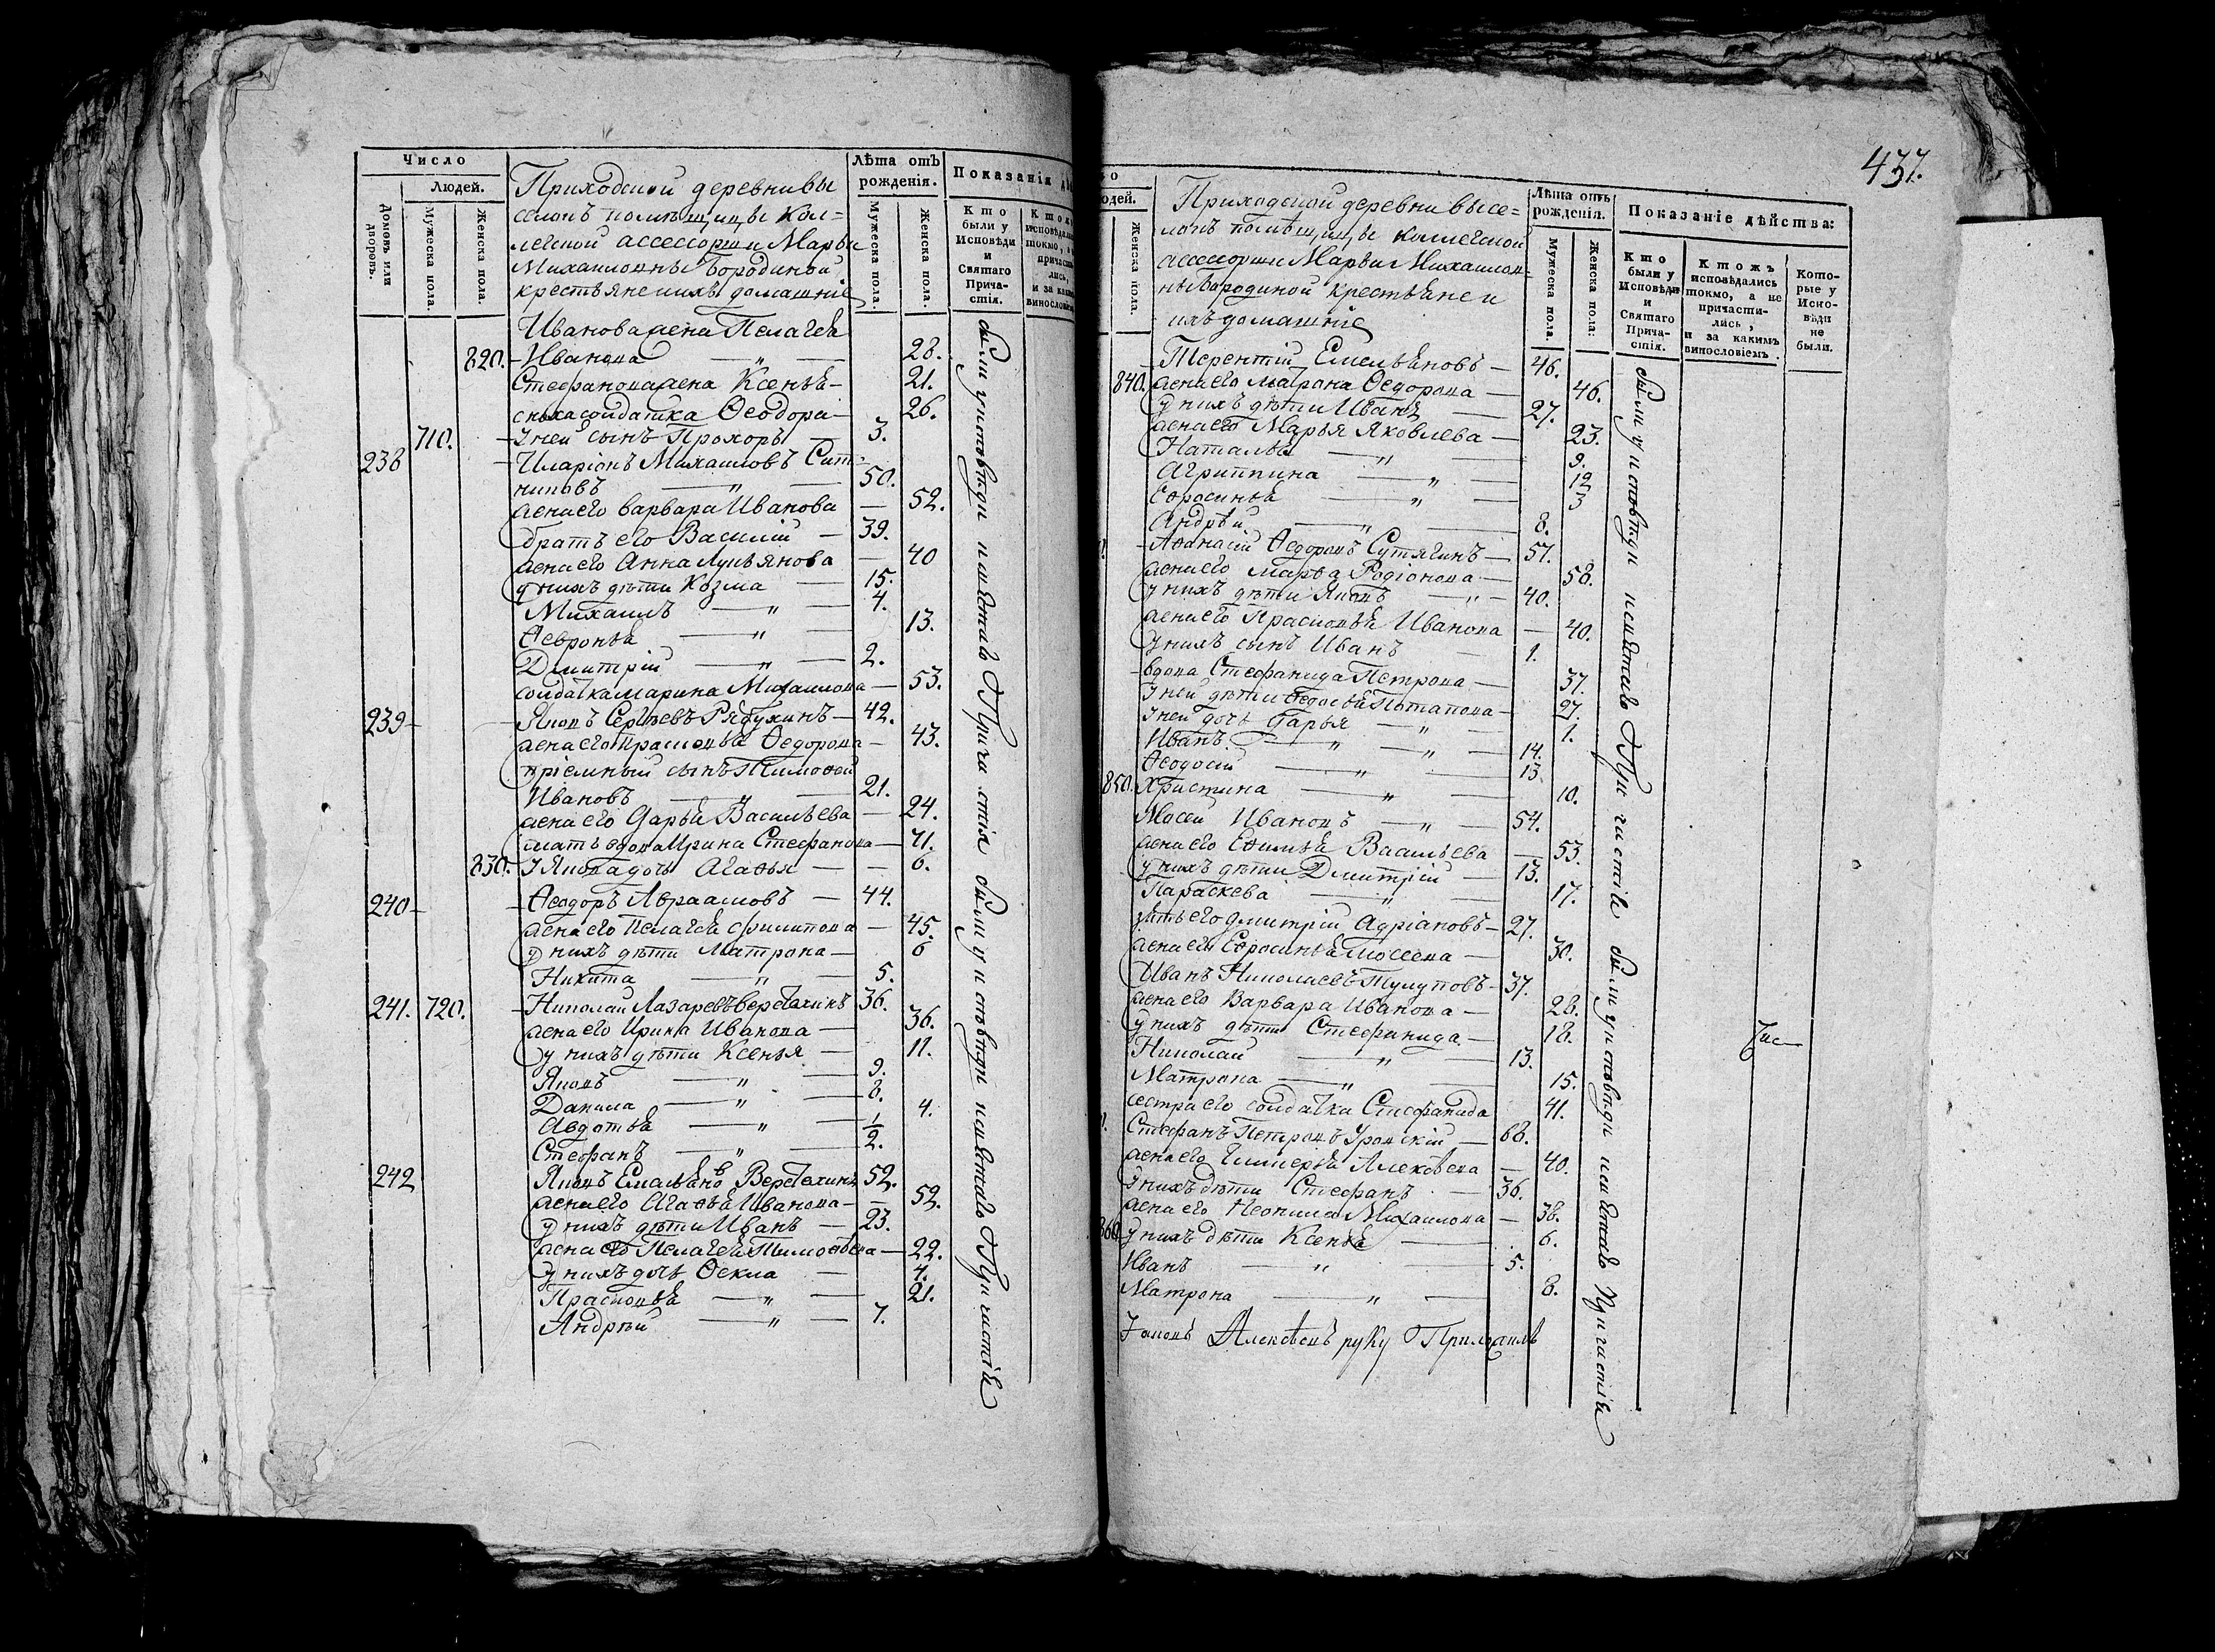 Число
Людей.
Домовъ или дворовъ.
Мужеска пола.
Женска пола.
Приходской деревни вы
селокъ помѣщицы Кол=
лежской ассесорши Марьи
Михаиловны Бородиной
крестьяне и ихъ домашніе
Лѣта отъ рожденія.
Мужеска пола.
Женска пола.
Показанія
Кто были у Исповѣди и Святаго Причастія.
Иванова жена Пелагея
820. Иванова — 28.
Стефанова жена Ксенья — 21.
сноха солдатка Феодора — 26.
710. У ней сынъ Прохоръ — 3.
238 Иларіонъ Михаиловъ Сит
никовъ — 50.
жена его варвара Иванова — 52.
братъ его Василій — 39.
жена его Анна Лукьянова — 40
у нихъ дѣти Козма — 15.
Михаилъ — 4.
Ѳевронья — 13.
Дмитрій — 2.
солдатка марина Михаилова — 53.
239 Яковъ Сергѣевъ Рябухинъ — 42.
жена его прасковья Ѳедорова — 43.
пріемный сынъ Тимоѳей
Ивановъ — 21.
жена его Дарья Васильева — 24.
мать вдова Ирина Стефанова — 71.
830. У Якова дочь Агаѳья — 6.
240 Ѳеодоръ Авраамовъ — 44.
жена его Пелагея филипова — 45.
у нихъ дѣти Матрона — 6
Никита — 5.
241. 720. Николай Лазаревъ Веретехинъ 36.
жена его Ирина Иванова — 36.
у нихъ дѣти Ксенья — 11.
Яковъ — 9.
Данила — 8.
Авдотья — 4.
Стефанъ — 2.
242 Яковъ Емельяновъ Веретехинъ 52.
жена его Агаѳья Иванова — 52.
у нихъ дѣти Иванъ — 23.
жена его Пелагея Тимоѳеева — 22.
у нихъ дочь Ѳекла — 4.
Прасковья — 21.
Андрѣй — 7.
были у исповѣди и святаго Причастія были у исповѣди и святаго Причастія
437.
Женска пола.
Приходской деревни высе=
локъ помѣщицы коллежской
ассесорши Марьи Михаилов=
ны Бородиной крестьяне и
ихъ домашніе
Лѣта отъ рожденія.
Мужеска пола
Женска пола:
Показаніе дѣйства:
Кто были у Исповѣди и Святаго Причастія.
Ктожъ исповѣдались токмо, а не причастились, и за какимъ винословіемъ.
Которые у Исповѣди не были.
Терентій Емельяновъ — 46.
840. жена его матрона Ѳедорова — 46.
у нихъ дѣти Иванъ — 27.
жена его Марья Яковлева — 23.
Наталья — 9.
Агриппина — 12
Ефросинья — 3
Андрѣй — 8.
Аѳанасій Ѳедоровъ Сутягинъ — 57.
жена его марѳа Родіонова — 58.
у нихъ дѣти Яковъ — 40.
жена его Прасковья Иванова — 40.
у нихъ сынъ Иванъ — 1.
вдова Стефанида Петрова — 37.
У ней дѣти Ѳедосья Потапова — 27.
У ней дочь Дарья — 1.
Иванъ — 14.
Ѳеодосій — 13.
850. Христина — 10.
Мосей Ивановъ — 54.
жена его Евѳимья Васильева — 53.
у нихъ дѣти Дмитрій — 13.
Параскева — 17.
зять его дмитрій Адріановъ — 27.
жена его Ефросинья Мосеева — 30.
Иванъ Николаевъ Тулуповъ — 37.
жена его Варвара Иванова — 28.
у нихъ дѣти Стефанида — 18.
Николай — 13.
Матрона — 15.
сестра его солдатка Стефанида 41.
Стефанъ Петровъ — 68.
жена его Гликерья Алексѣева — 40.
У нихъ дѣти Стефанъ — 36.
жена его Неонила Михаилова — 38.
860 у нихъ дѣти Ксенья — 6.
Иванъ — 5.
Матрона — 8.
Алексѣевъ руку Приложилъ
были у исповѣди и святаго Причастія были у исповѣди и святаго Причастія